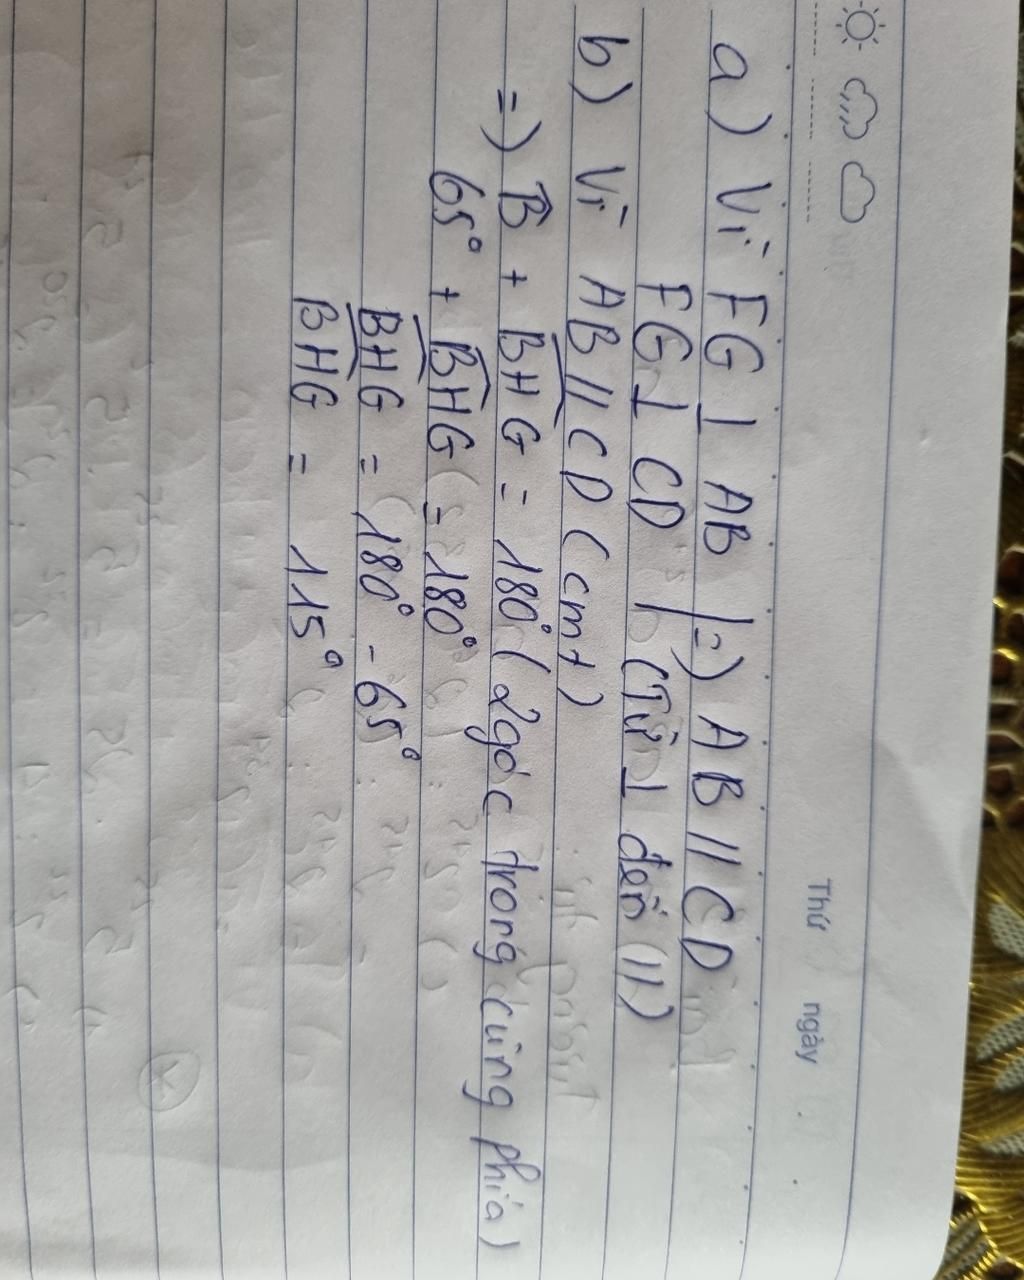 Thứ ngày
a) Vì FG ⊥ AB |=) AB // CD
FG ⊥ CD | (Từ ⊥ đến //)
b) Vì AB // CD (cmt)
=) B̂ + B͡HG = 180° (2 góc trong cùng phía)
65° + B͡HG = 180°
B͡HG = 180° - 65°
B͡HG = 115°